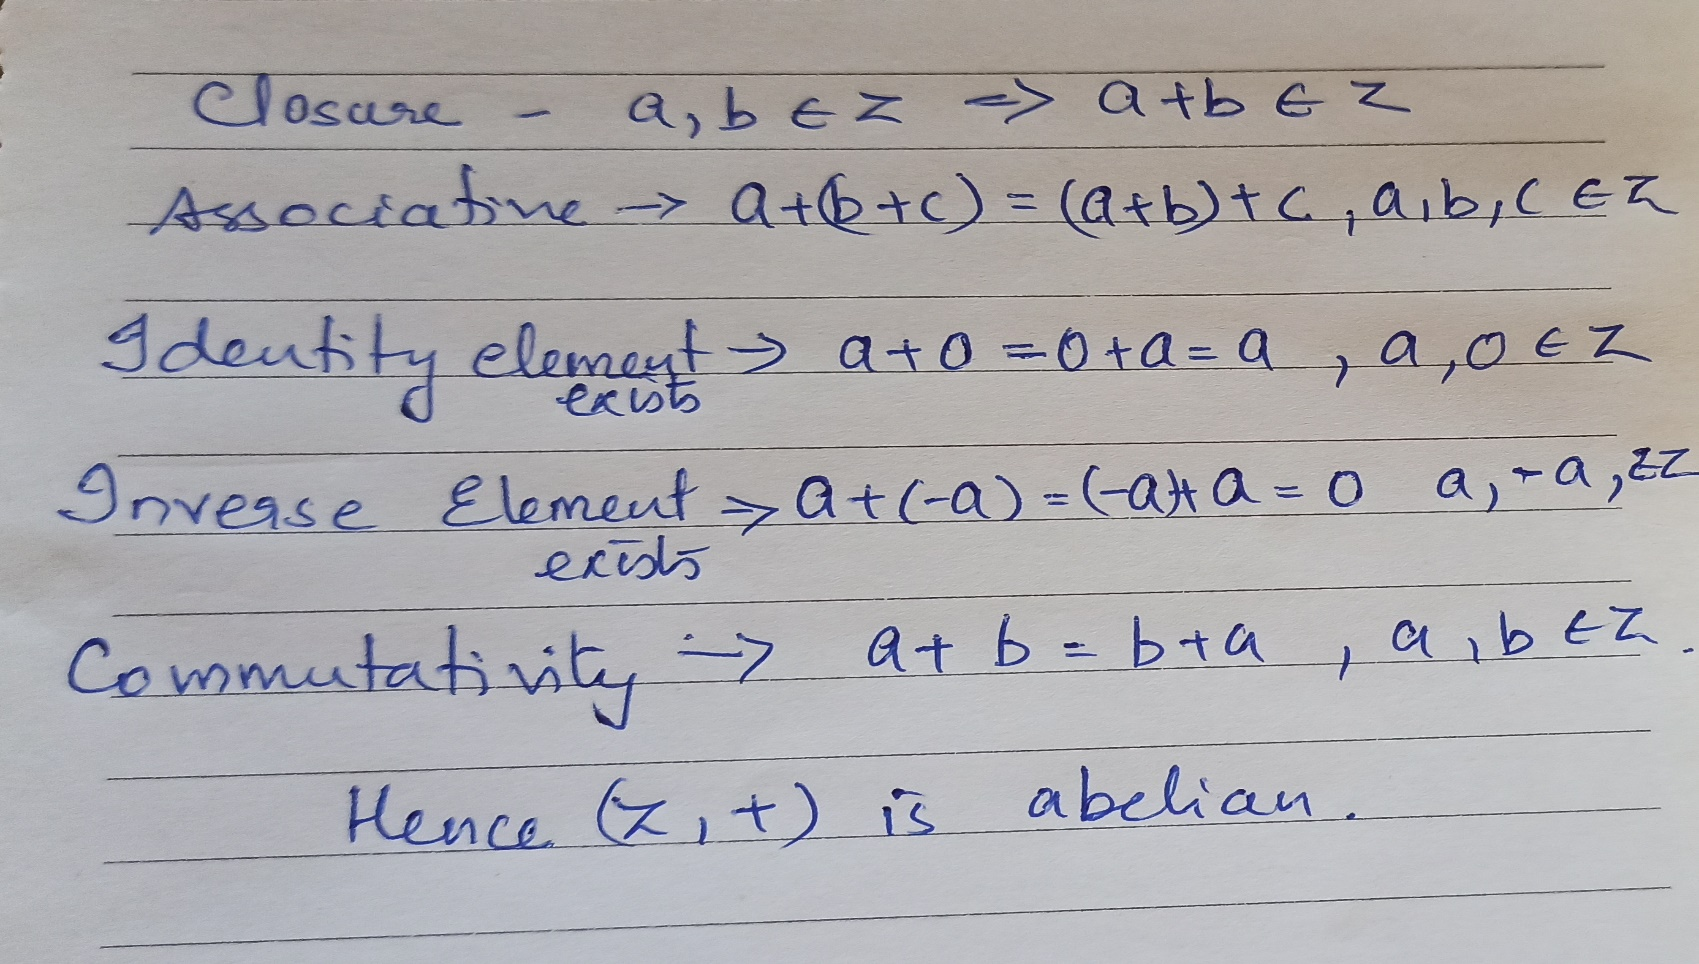 Closure - a, b ∈ Z => a+b ∈ Z
Associative -> a+(b+c) = (a+b)+c, a,b,c ∈ Z
Identity element -> a+0 =0+a=a , a,0 ∈ Z
exists
Inverse Element -> a+(-a) = (-a)+a = 0 a, -a, ∈Z
exists
Commutativity -> a+b = b+a , a,b ∈ Z.
Hence (Z,+) is abelian.